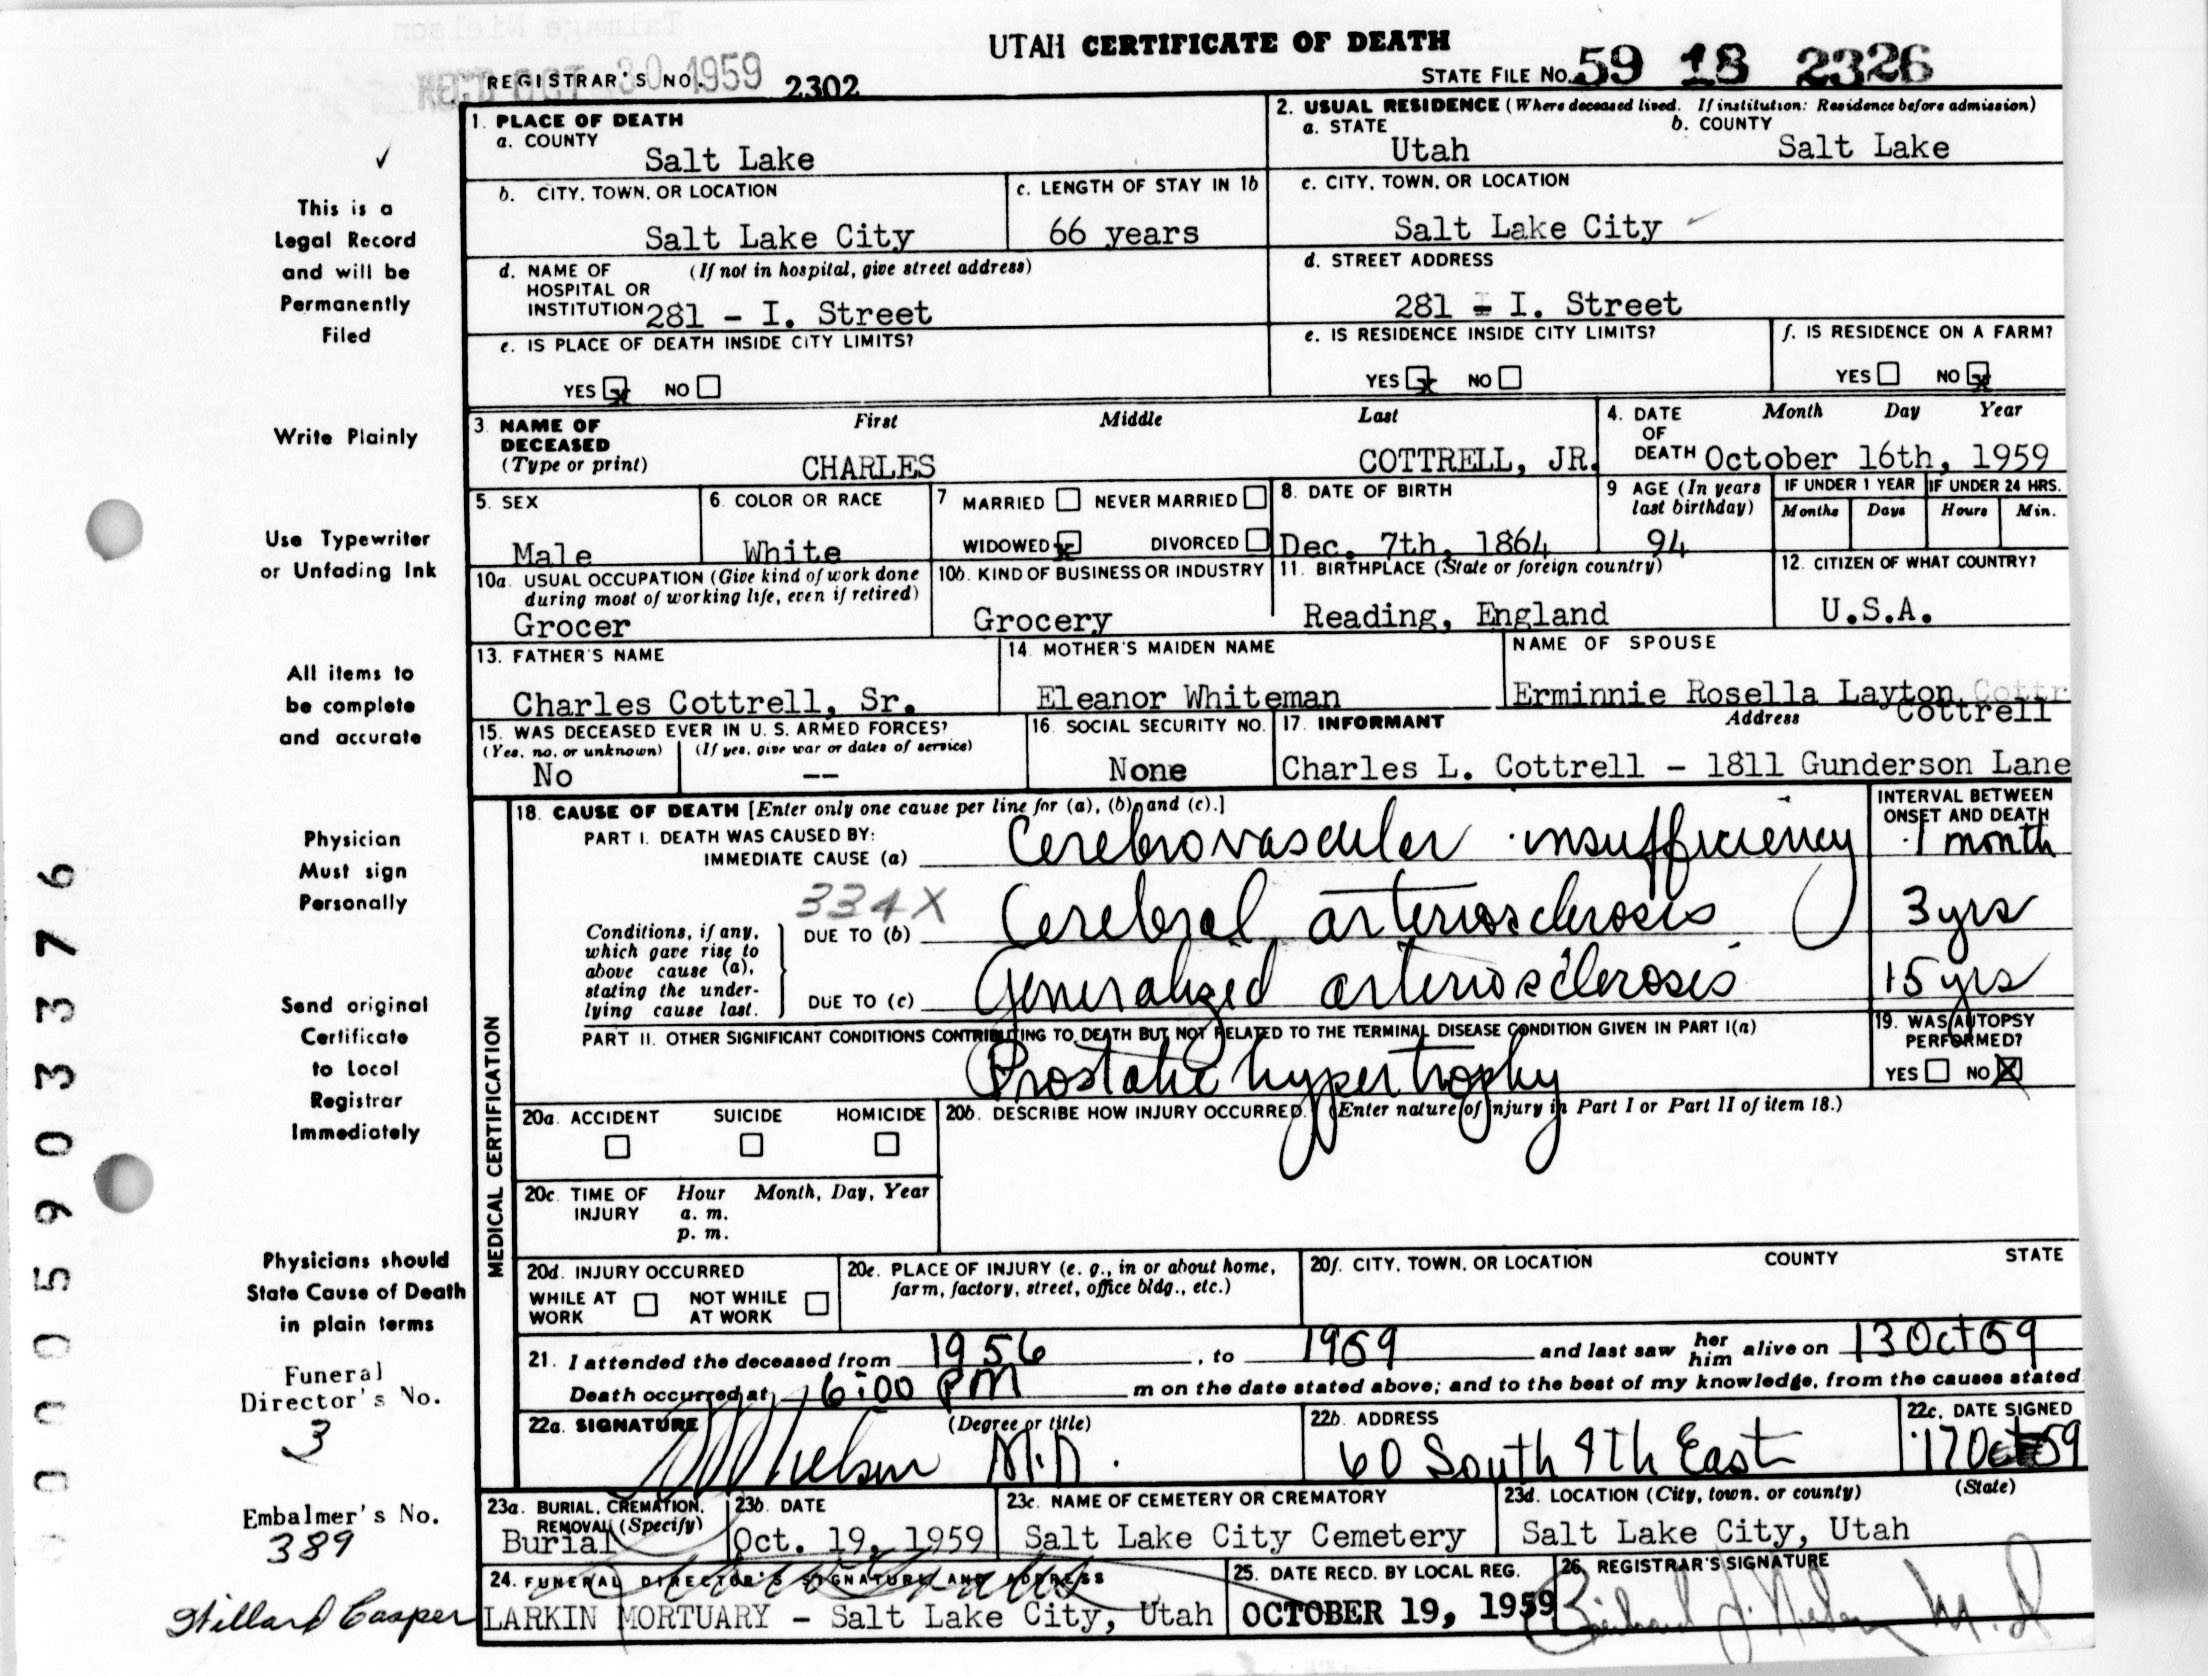 UTAH CERTIFICATE OF DEATH
REC'D OCT 30 1959
REGISTRAR'S NO. 2302
STATE FILE No. 59 18 2326
1. PLACE OF DEATH
a. COUNTY
Salt Lake
2. USUAL RESIDENCE (Where deceased lived. If institution: Residence before admission)
a. STATE b. COUNTY
Utah Salt Lake
b. CITY, TOWN, OR LOCATION
Salt Lake City
c. LENGTH OF STAY IN 1b
66 years
c. CITY, TOWN, OR LOCATION
Salt Lake City
d. NAME OF (If not in hospital, give street address)
HOSPITAL OR
INSTITUTION 281 - I. Street
d. STREET ADDRESS
281 - I. Street
e. IS PLACE OF DEATH INSIDE CITY LIMITS?
YES x NO
e. IS RESIDENCE INSIDE CITY LIMITS?
YES x NO
f. IS RESIDENCE ON A FARM?
YES NO x
3. NAME OF DECEASED (Type or print)
First Middle Last
CHARLES COTTRELL, JR.
4. DATE OF DEATH
Month Day Year
October 16th, 1959
5. SEX
Male
6. COLOR OR RACE
White
7 MARRIED NEVER MARRIED
WIDOWED x DIVORCED
8. DATE OF BIRTH
Dec. 7th, 1864
9 AGE (In years last birthday)
94
IF UNDER 1 YEAR
Months Days
IF UNDER 24 HRS.
Hours Min.
10a. USUAL OCCUPATION (Give kind of work done
during most of working life, even if retired)
Grocer
10b. KIND OF BUSINESS OR INDUSTRY
Grocery
11. BIRTHPLACE (State or foreign country)
Reading, England
12. CITIZEN OF WHAT COUNTRY?
U.S.A.
13. FATHER'S NAME
Charles Cottrell, Sr.
14. MOTHER'S MAIDEN NAME
Eleanor Whiteman
NAME OF SPOUSE
Erminnie Rosella Layton Cottr
Cottrell
15. WAS DECEASED EVER IN U. S. ARMED FORCES?
(Yes, no, or unknown) (If yes, give war or dates of service)
No --
16. SOCIAL SECURITY NO.
None
17. INFORMANT Address
Charles L. Cottrell - 1811 Gunderson Lane
MEDICAL CERTIFICATION
18. CAUSE OF DEATH [Enter only one cause per line for (a), (b), and (c).]
INTERVAL BETWEEN
ONSET AND DEATH
PART I. DEATH WAS CAUSED BY:
IMMEDIATE CAUSE (a) Cerebrovascular insufficiency 1 month
334X
Conditions, if any,
which gave rise to
above cause (a),
stating the under-
lying cause last.
DUE TO (b) Cerebral arteriosclerosis 3 yrs
DUE TO (c) Generalized arteriosclerosis 15 yrs
PART II. OTHER SIGNIFICANT CONDITIONS CONTRIBUTING TO DEATH BUT NOT RELATED TO THE TERMINAL DISEASE CONDITION GIVEN IN PART I(a)
Prostatic hypertrophy
19. WAS AUTOPSY
PERFORMED?
YES NO X
20a. ACCIDENT SUICIDE HOMICIDE
20b. DESCRIBE HOW INJURY OCCURRED. (Enter nature of injury in Part I or Part II of item 18.)
20c. TIME OF INJURY
Hour Month, Day, Year
a. m.
p. m.
20d. INJURY OCCURRED
WHILE AT WORK NOT WHILE AT WORK
20e. PLACE OF INJURY (e. g., in or about home,
farm, factory, street, office bldg., etc.)
20f. CITY, TOWN, OR LOCATION COUNTY STATE
21. I attended the deceased from 1956, to 1959 and last saw her him alive on 13 Oct 59
Death occurred at 6:00 PM m on the date stated above; and to the best of my knowledge, from the causes stated
22a. SIGNATURE (Degree or title)
Nielsen M.D.
22b. ADDRESS
60 South 4th East
22c. DATE SIGNED
17 Oct 59
23a. BURIAL, CREMATION,
REMOVAL (Specify)
Burial
23b. DATE
Oct. 19, 1959
23c. NAME OF CEMETERY OR CREMATORY
Salt Lake City Cemetery
23d. LOCATION (City, town, or county) (State)
Salt Lake City, Utah
24. FUNERAL DIRECTOR'S SIGNATURE AND ADDRESS
LARKIN MORTUARY - Salt Lake City, Utah
25. DATE RECD. BY LOCAL REG.
OCTOBER 19, 1959
26. REGISTRAR'S SIGNATURE
M.D.
This is a
Legal Record
and will be
Permanently
Filed
Write Plainly
Use Typewriter
or Unfading Ink
All items to
be complete
and accurate
Physician
Must sign
Personally
Send original
Certificate
to Local
Registrar
Immediately
Physicians should
State Cause of Death
in plain terms
Funeral
Director's No.
3
Embalmer's No.
389
Willard Cooper
000005903376